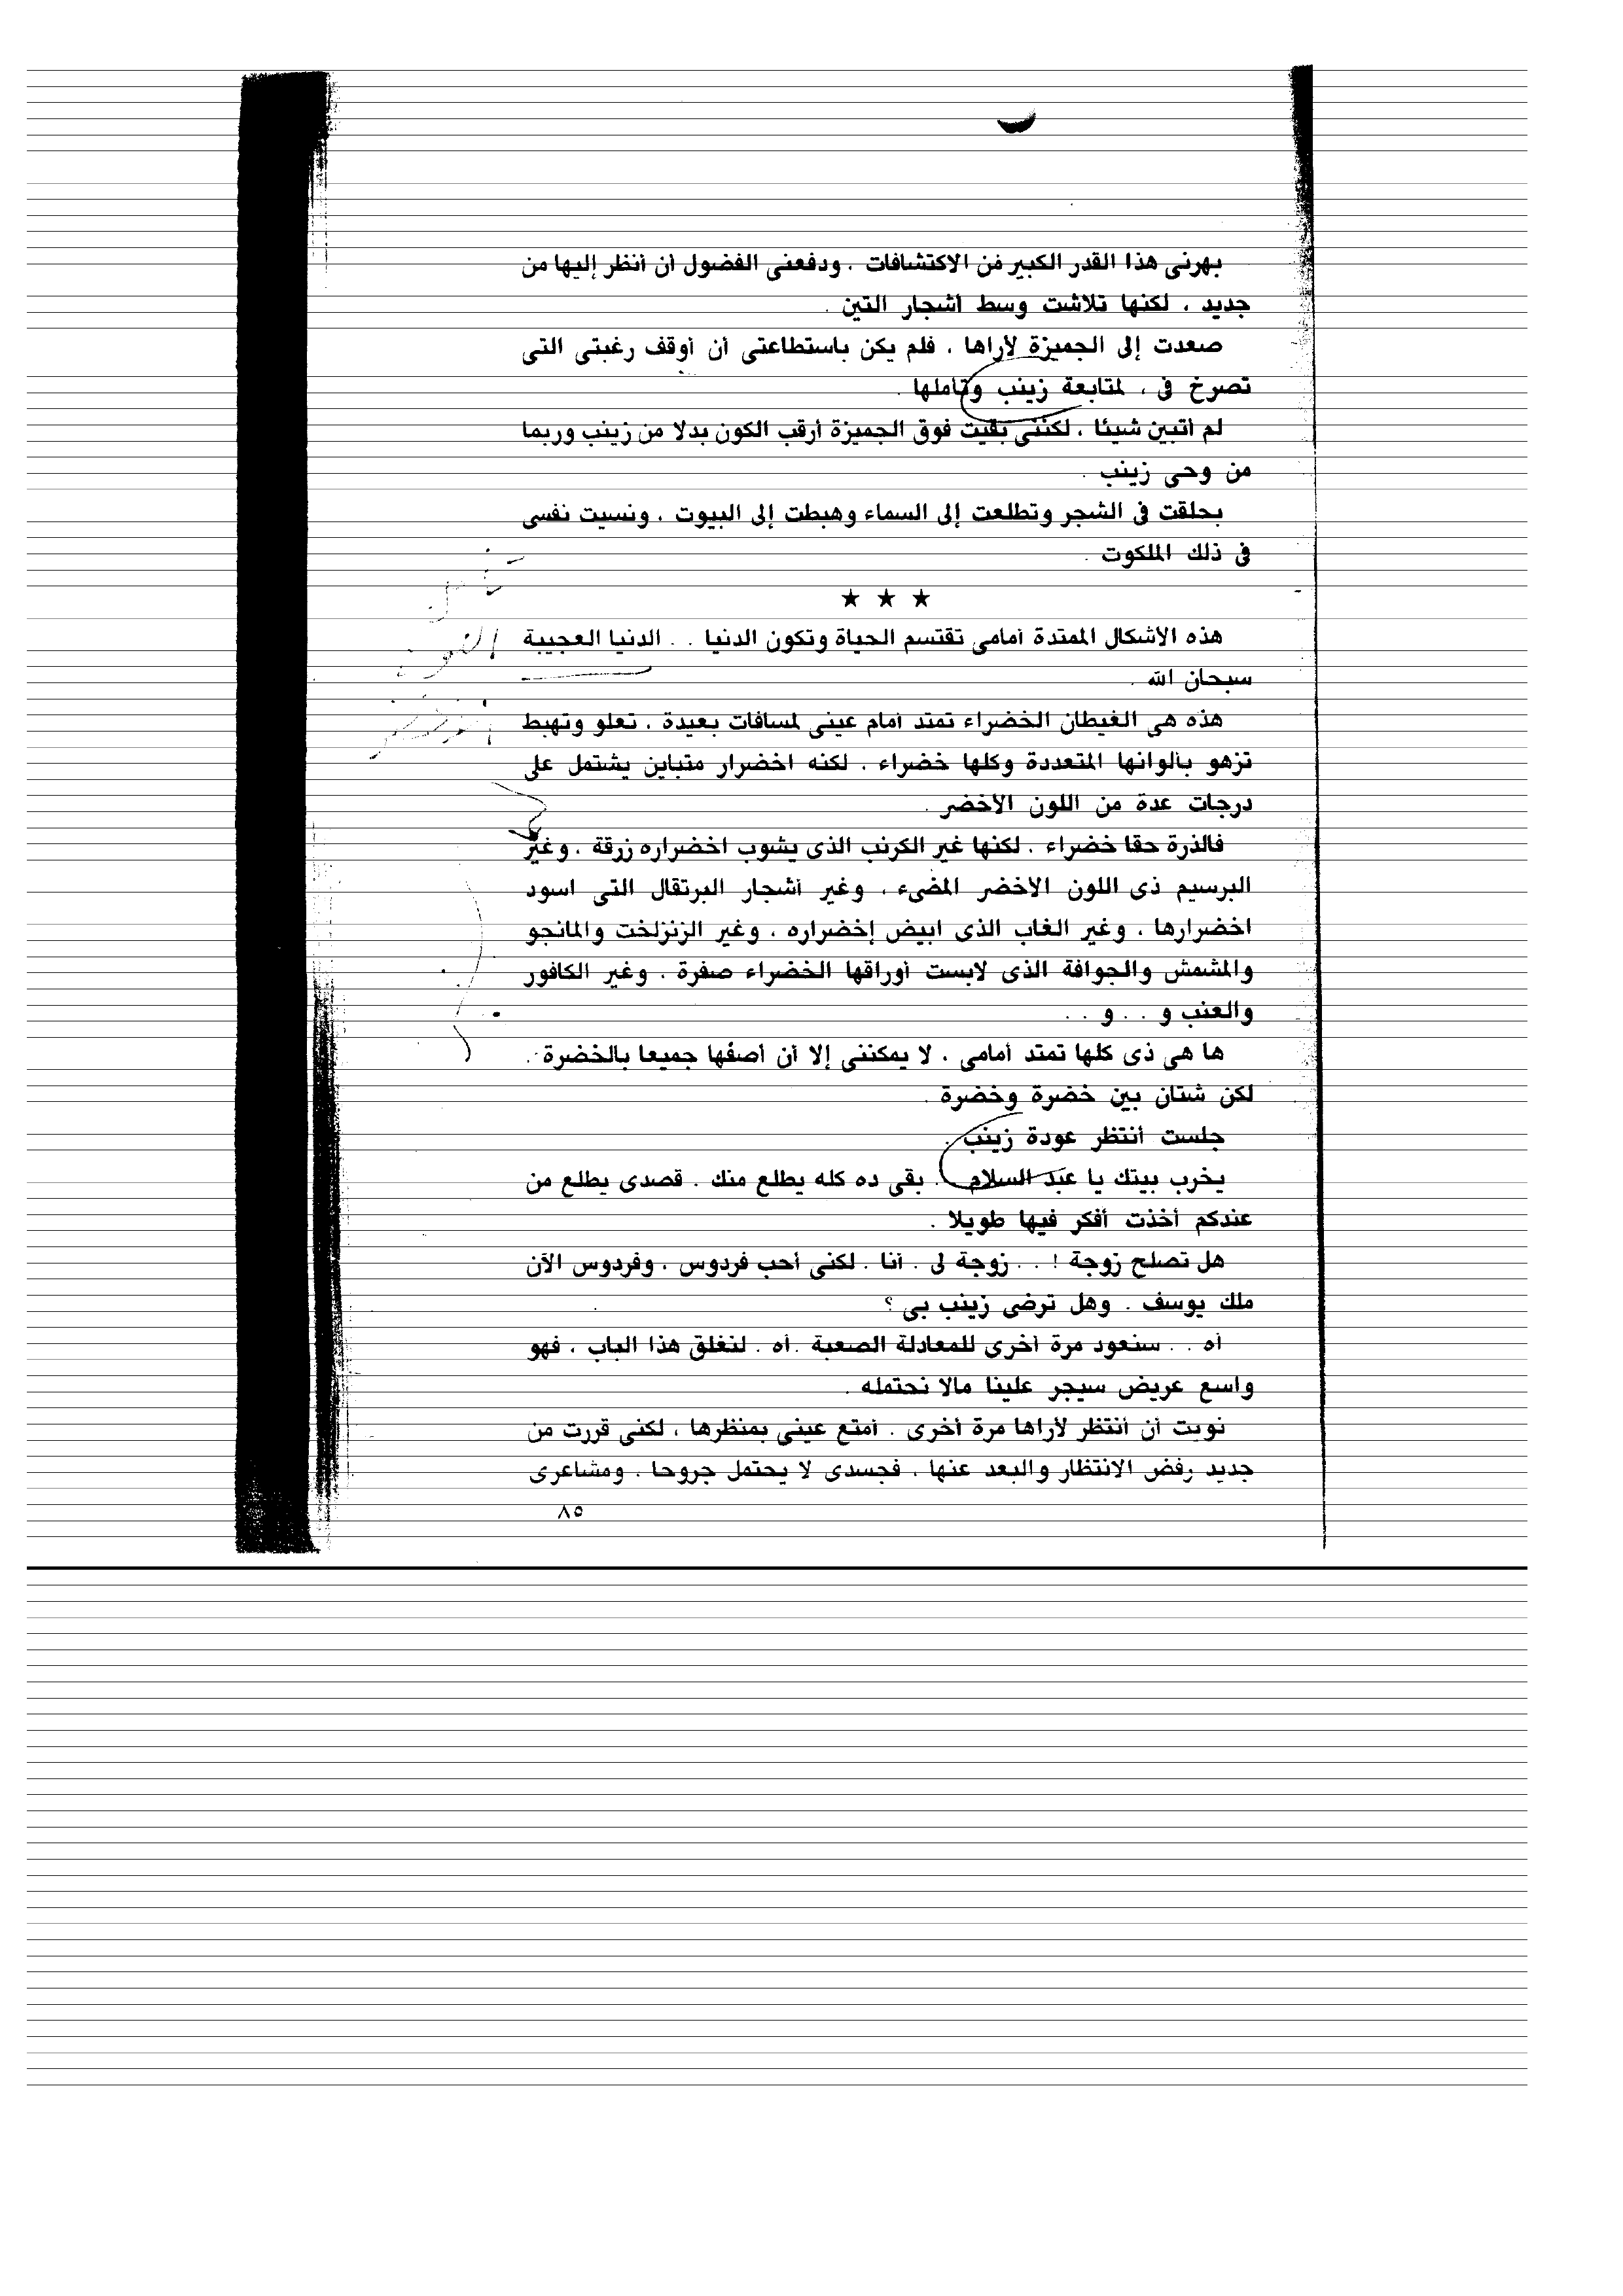 بهرنى هذا القدر الكبير من الاكتشافات ، ودفعنى الفضول أن أنظر إليها من
جديد ، لكنها تلاشت وسط أشجار التين .
صعدت إلى الجميزة لأراها ، فلم يكن باستطاعتى أن أوقف رغبتى التى
تصرخ فى ، لمتابعة زينب وتأملها .
لم أتبين شيئا ، لكننى بقيت فوق الجميزة أرقب الكون بدلا من زينب وربما
من وحى زينب .
بحلقت فى الشجر وتطلعت إلى السماء وهبطت إلى البيوت ، ونسيت نفسى
فى ذلك الملكوت .
★ ★ ★
هذه الأشكال الممتدة أمامى تقتسم الحياة وتكون الدنيا . . الدنيا العجيبة
سبحان الله .
هذه هى الغيطان الخضراء تمتد أمام عينى لمسافات بعيدة ، تعلو وتهبط
تزهو بألوانها المتعددة وكلها خضراء ، لكنه اخضرار متباين يشتمل على
درجات عدة من اللون الأخضر .
فالذرة حقا خضراء ، لكنها غير الكرنب الذى يشوب اخضراره زرقة ، وغير
البرسيم ذى اللون الأخضر المضىء ، وغير أشجار البرتقال التى اسود
اخضرارها ، وغير الغاب الذى ابيض إخضراره ، وغير الزنزلخت والمانجو
والمشمش والجوافة الذى لابست أوراقها الخضراء صفرة ، وغير الكافور
والعنب و . . و . .
ها هى ذى كلها تمتد أمامى ، لا يمكننى إلا أن أصفها جميعا بالخضرة .
لكن شتان بين خضرة وخضرة .
جلست أنتظر عودة زينب .
يخرب بيتك يا عبد السلام . بقى ده كله يطلع منك . قصدى يطلع من
عندكم أخذت أفكر فيها طويلا .
هل تصلح زوجة ! . . زوجة لى . أنا . لكنى أحب فردوس ، وفردوس الآن
ملك يوسف . وهل ترضى زينب بى ؟
أه . . سنعود مرة أخرى للمعادلة الصعبة . أه . لنغلق هذا الباب ، فهو
واسع عريض سيجر علينا مالا نحتمله .
نويت أن أنتظر لأراها مرة أخرى . أمتع عينى بمنظرها ، لكنى قررت من
جديد رفض الانتظار والبعد عنها ، فجسدى لا يحتمل جروحا ، ومشاعرى
٨٥